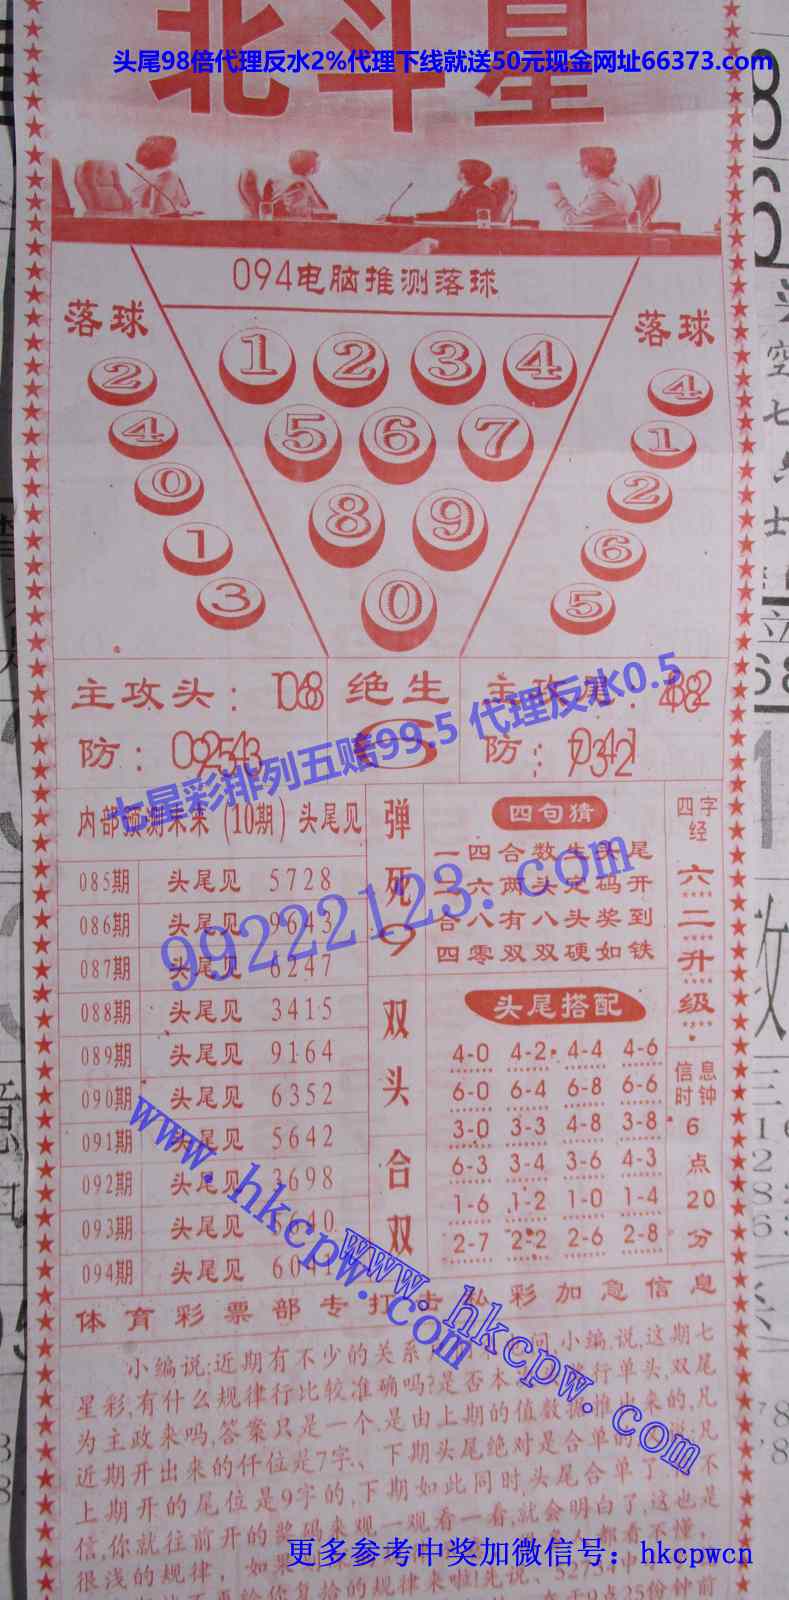 北斗星
头尾98倍代理反水2%代理下线就送50元现金网址66373.com
094电脑推测落球
落球
落球
1 2 3 4
5 6 7
8 9
0
2
4
0
1
3
4
1
2
6
5
主攻头：1068
绝生
6
主攻尾：4682
防：
防：
七星彩排列五赔99.5 代理反水0.5
内部预测未来（10期）头尾见
085期 头尾见 5728
086期 头尾见 9643
087期 头尾见 6247
088期 头尾见 3415
089期 头尾见 9164
090期 头尾见 6352
091期 头尾见 5642
092期 头尾见 3698
093期 头尾见
094期 头尾见
弹死9
双头
合双
四句猜
一四合数生头尾
二六两头定码开
合八有八头奖到
四零双双硬如铁
头尾搭配
4-0 4-2 4-4 4-6
6-0 6-4 6-8 6-6
3-0 3-3 4-8 3-8
6-3 3-4 3-6 4-3
1-6 1-2 1-0 1-4
2-7 2-2 2-6 2-8
四字经
六二升级
信息时钟
6点20分
99222123.com
www.hkcpw.com
www.hkcpw.com
体育彩票部专打击私彩加急信息
小编说:近期有不少的关系 问,小编,说,这期七
星彩,有什么规律行比较准确吗?是否本 行单头,双尾
为主政来吗,答案只是一个,是由上期的值数 推出来的,凡
近期开出来的仟位是7字、下期头尾绝对是合单的 凡
上期开的尾位是9字的,下期如此同时,头尾合单了 不
信,你就往前开的奖码来观一观看一看,就会明白了,这也是
很浅的规律，如果 都看不懂，
更多参考中奖加微信号：hkcpwcn